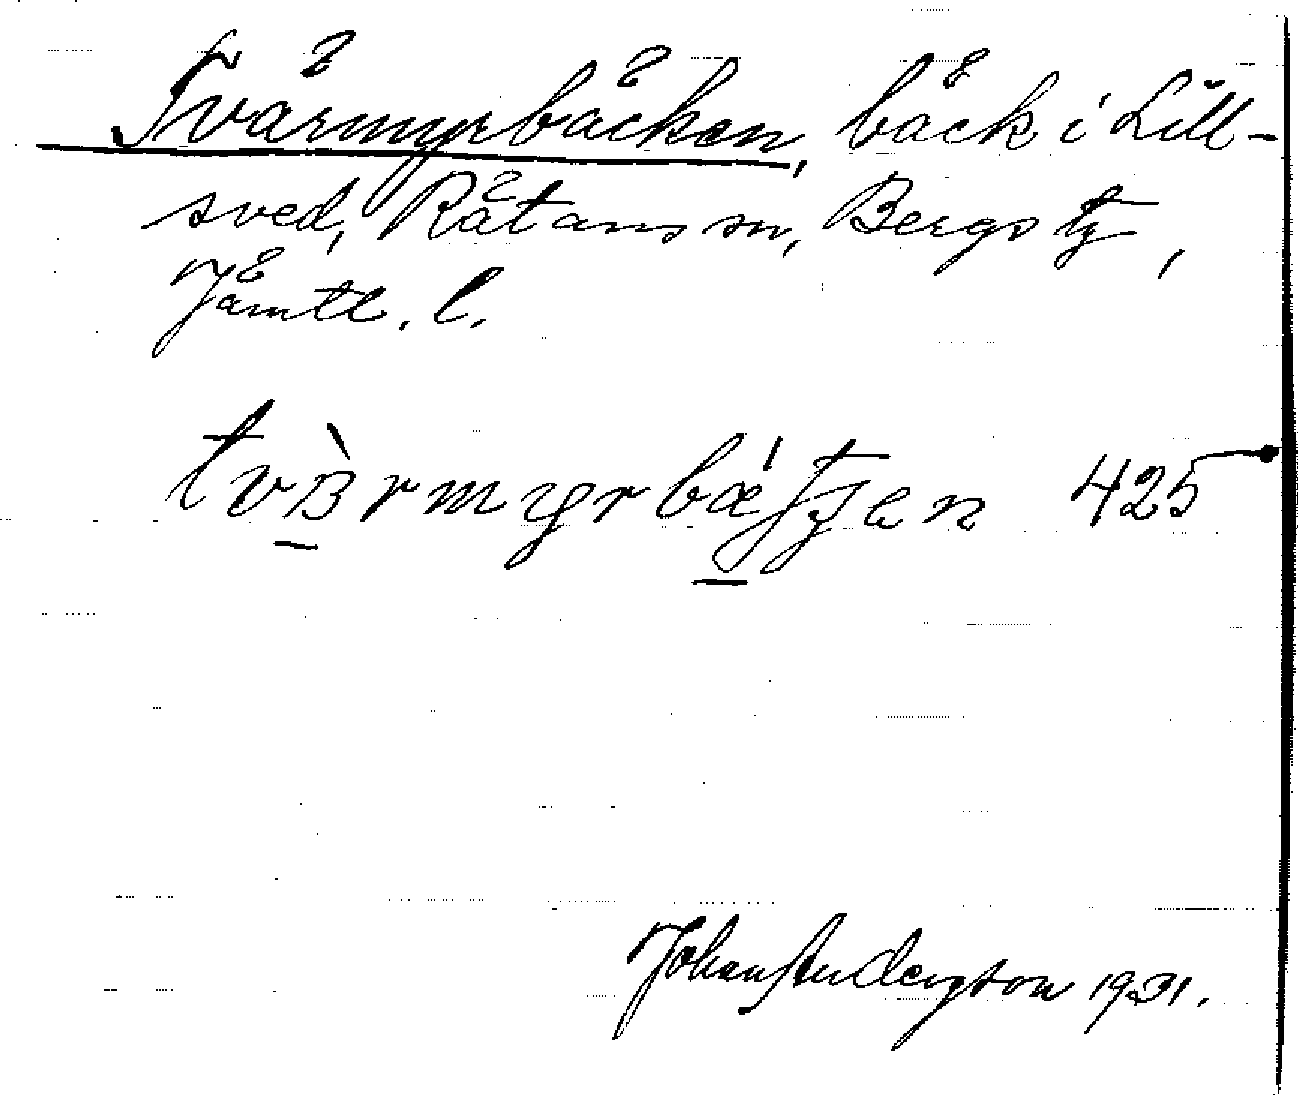 Tvärmyrbäcken, bäck i Lill-
sved, Rätans sn, Bergs tg,
Jämtl. l.
tvä̀rmyrbǽtʃen 425
Johan Anderson 1931.